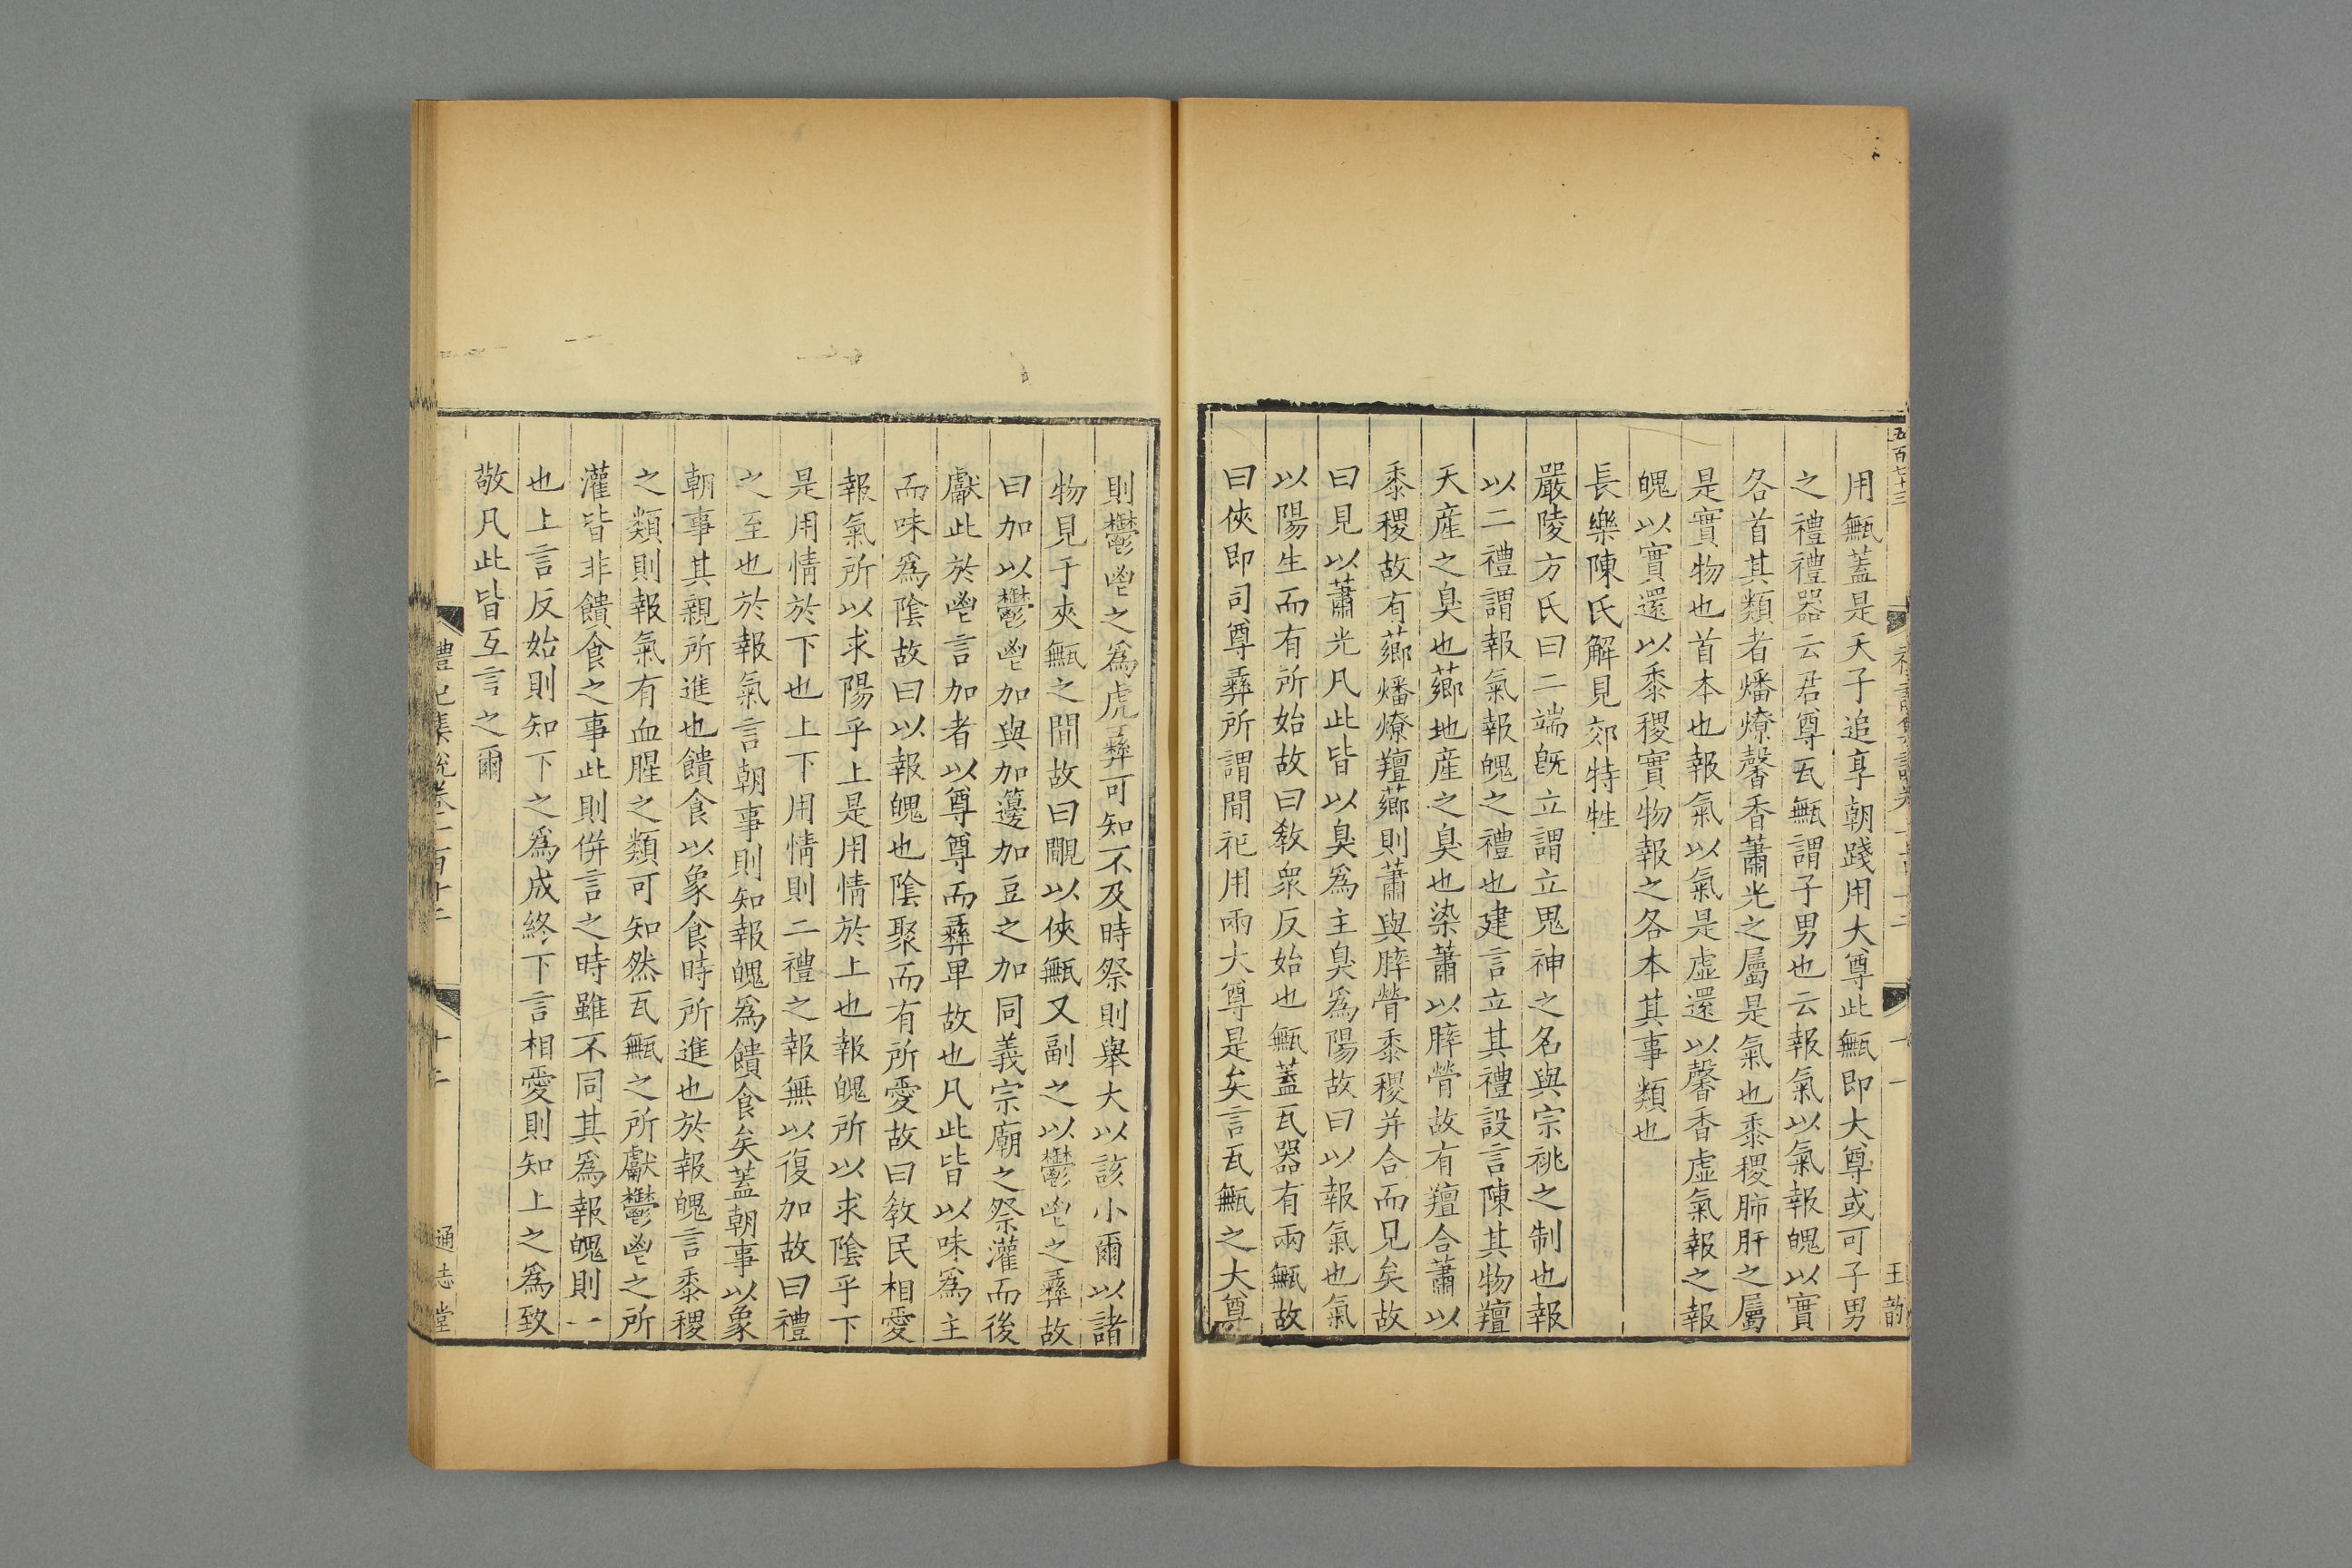 五百七十三
王韵
用甒蓋是天子追享朝踐用大尊此甒即大尊或可子男
之禮禮器云君尊瓦甒謂子男也云報氣以氣報魄以實
各首其類者燔燎馨香蕭光之屬是氣也黍稷肺肝之屬
是實物也首本也報氣以氣是虛還以馨香虛氣報之報
魄以實還以黍稷實物報之各本其事類也
長樂陳氏解見郊特牲
嚴陵方氏曰二端旣立謂立鬼神之名與宗祧之制也報
以二禮謂報氣報魄之禮也建言立其禮設言陳其物羶
天産之臭也薌地産之臭也染蕭以膟膋故有羶合蕭以
黍稷故有薌燔燎羶薌則蕭與膟膋黍稷并合而見矣故
曰見以蕭光凡此皆以臭爲主臭爲陽故曰以報氣也氣
以陽生而有所始故曰敎衆反始也甒蓋瓦器有兩甒故
曰俠即司尊彝所謂間祀用兩大尊是矣言瓦甒之大尊
則鬱鬯之爲虎彝可知不及時祭則舉大以該小爾以諸
物見于夾甒之間故曰覸以俠甒又副之以鬱鬯之彝故
曰加以鬱鬯加與加籩加豆之加同義宗廟之祭灌而後
獻此於鬯言加者以尊尊而彝卑故也凡此皆以味爲主
而味爲陰故曰以報魄也陰聚而有所愛故曰敎民相愛
報氣所以求陽乎上是用情於上也報魄所以求陰乎下
是用情於下也上下用情則二禮之報無以復加故曰禮
之至也於報氣言朝事則知報魄爲饋食矣蓋朝事以象
朝事其親所進也饋食以象食時所進也於報魄言黍稷
之類則報氣有血腥之類可知然瓦甒之所獻鬱鬯之所
灌皆非饋食之事此則併言之時雖不同其爲報魄則一
也上言反始則知下之爲成終下言相愛則知上之爲致
敬凡此皆互言之爾
禮記集說卷一百十二
十二
通志堂